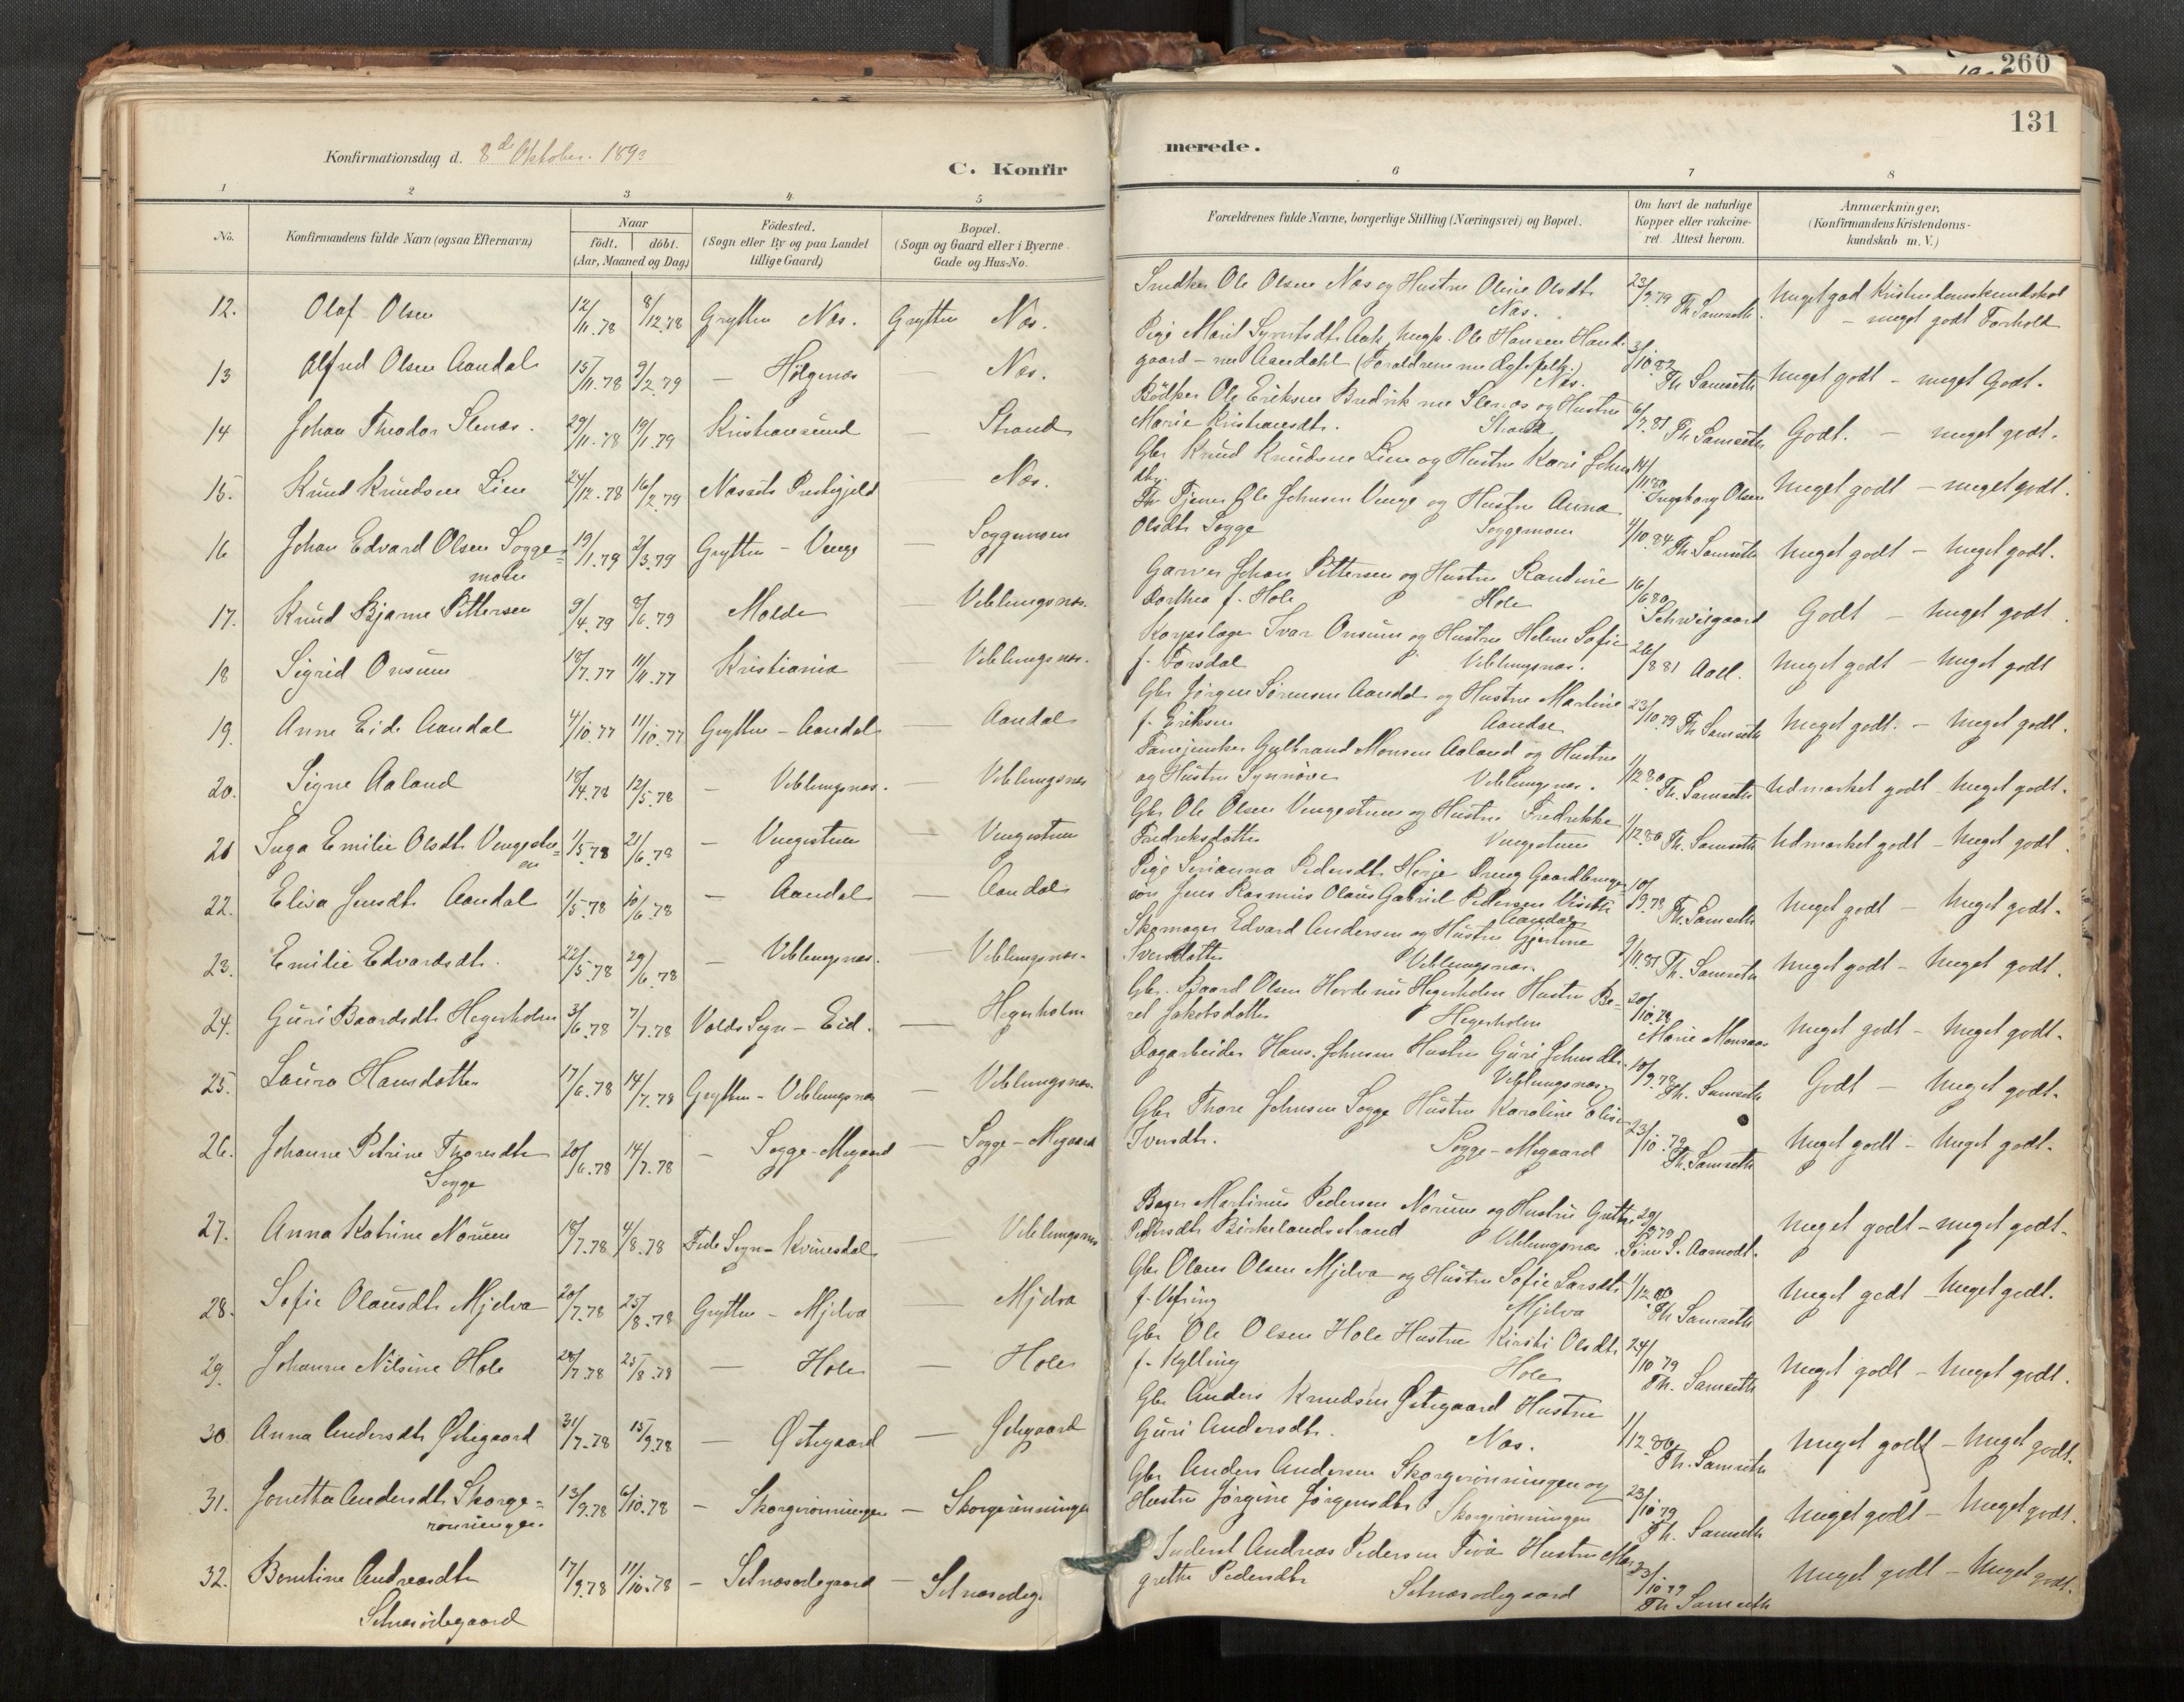 260
131
Konfirmationsdag d. 8de Oktober 1893
C. Konfirmerede.
1 2 3 4 5 6 7 8
No.
Konfirmandens fulde Navn (ogsaa Efternavn)
Naar
födt. döbt.
(Aar, Maaned og Dag)
Födested.
(Sogn eller By og paa Landet
tillige Gaard)
Bopæl.
(Sogn og Gaard eller i Byerne
Gade og Hus-No.
Forældrenes fulde Navne, borgerlige Stilling (Næringsvei) og Bopæl.
Om havt de naturlige
Kopper eller vakcine-
ret. Attest herom.
Anmærkninger,
(Konfirmandens Kristendoms-
kundskab m. V.)
12. Olaf Olsen 12/11.78 8/12.78 Grytten Næs. Grytten Næs.
Snedker Ole Olsen Næs og Hustru Oline Olsdtr
Næs. 23/9.79 Th. Samseth. Meget god Kristendomskundskab
– meget godt Forhold
13 Alfred Olsen Aandal 15/11.78 9/2.79 – Hølgenes – Næs.
Pige Marit Syvertsdtr Aak Ungk. Ole Hansen Haand
gaard – nu Aandahl (Forældrene nu Ægtefolk.)
Næs. 3/10.82 Th Samseth Meget godt – meget Godt.
14 Johan Theodor Slenæs. 29/11.78 19/1.79 Kristiansund – Strand
Bödker Ole Eriksen Bredvik nu Slenæs og Hustru
Marie Kristiansdtr. Strand 6/7.81 Th Samseth Godt. – meget godt.
15. Knud Knudsen Lien 24/12.78 16/2.79 Næssets Prestegjeld Næs.
Gbr Knud Knudsen Lien og Hustru Kari Johns
dtr. 14/11.80 Ingeborg Olsen Meget godt – meget godt.
16 Johan Edvard Olsen Sogge=
moen 19/1.79 2/3.79 Grytten – Venge – Soggemoen
Tjener Ole Johnsen Venge og Hustru Anna
Olsdtr Sogge Soggemoen 4/10.84 Th. Samseth Meget godt – Meget godt.
17. Knud Bjarne Pettersen 9/4.79 8/6.79 Molde Veblungsnæs.
Garver Johan Pettersen og Hustru Randine
Dorthea f. Hole Hole 16/6.80 Schweigaard Godt – Meget godt.
18 Sigrid Onsum 18/7.77 11/11.77 Kristiania – Veblungsnæs.
Korpslæge Ivar Onsum og Hustru Helene Sofie
f. Forsdal Veblungsnæs. 26/8 81 Aall. Meget godt – Meget godt
19. Anne Eide Aandal 4/10.77 11/10.77 Grytten – Aandal – Aandal
Gbr Jørgen Sørensen Aandal og Hustru Martine
f. Eriksen Aandal 23/10.79 Th Samseth Meget godt. – Meget godt.
20. Signe Aaland 18/4.78 12/5.78 – Veblungsnæs. – Veblungsnæs
Fanejunker Gulbrand Monsen Aaland og Hustru
og Hustru Synnøve Veblungsnæs. 1/12.80 Th. Samseth Udmærket godt – Meget godt.
21 Inga Emilie Olsdtr Vengestu=
en 1/5.78 21/6.78 – Vengestuen – Vengestuen
Gbr Ole Olsen Vengestuen og Hustru Fredrikke
Fredriksdatter Vengestuen 1/12.80 Th. Samseth Udmærket godt – Meget godt.
22. Elisa Jensdtr Aandal 1/5.78 10/6.78 – Aandal – Aandal
Pige Serianna Pedersdtr Herje Dreng Gaardbruger
søn Jens Rasmus Olaus Gabriel Pedersen
Aandal 10/9.78 Th. Samseth Meget godt – Meget godt.
23. Emilie Edvardsdtr. 22/5.78 29/6.78 – Veblungsnæs. – Veblungsnæs.
Skomager Edvard Andersen og Hustru Gjertine
Iversdatter Veblungsnæs. 9/11.81 Th. Samseth Meget godt – Meget godt.
24. Guri Baardsdtr Hegerholm 3/6.78 7/7.78 Volds Sogn – Eid. – Hegerholm
Gbr. Baard Olsen Herde nu Hegerholm Hustru Be=
ret Jakobsdatter Hegerholm 20/10.78 Marie Monsaas Meget godt – Meget godt.
25. Laura Hansdatter 17/6.78 14/7.78 Grytten – Veblungsnæs – Veblungsnæs.
Dagarbeider Hans Johnsen Hustru Guri Johnsdtr.
Veblungsnæs. 10/9.78 Th. Samseth Godt – Meget godt.
26. Johanne Petrine Thoresdtr
Sogge 20/6.78 14/7.78 – Sogge-Megaard – Sogge – Megaard
Gbr Thore Johnsen Sogge Hustru Karoline Elise
Iversdtr. Sogge – Megaard 23/10.79 Th. Samseth Meget godt – Meget godt.
27. Anna Katrine Norum 18/7.78 4/8.78 Fede Sogn – Kvinesdal – Veblungsnæs
Bager Martinus Pedersen Norum og Hustru Gurine
Pedersdtr Birkelandsstrand Veblungsnæs. Søren S. Aamodt. Meget godt – meget godt.
28. Sofie Olausdtr Mjelva 20/7.78 25/8.78 Grytten – Mjelva – Mjelva
Gbr Olaus Olsen Mjelva og Hustru Sofie Larsdtr
f. Ufring Mjelva 1/12.80 Th Samseth Meget godt – Meget godt.
29. Johanne Nilsine Hole 28/7.78 25/8.78 – Hole – Hole
Gbr Ole Olsen Hole Hustru Kirsti Olsdtr
f. Kylling Hole 24/10 79 Th. Samseth Meget godt – Meget godt.
30 Anna Andersdtr Østigaard 31/7.78 15/9.78 – Østigaard – Østigaard
Gbr Anders Knudsen Østigaard Hustru
Guri Andersdtr. Næs. 1/12.80 Th. Samseth Meget godt – Meget godt.
31. Jonetta Andersdtr Skorge=
rønningen 13/9.78 6/10.78 – Skorgerønningen – Skorgerønningen
Gbr Anders Andersen Skorgerønningen og
Hustru Jørgine Jørgensdtr Skorgerønningen 23/10 79 Th. Samseth Meget godt – Meget godt.
32. Berntine Andreasdtr
Setnæsødegaard 17/9.78 11/10.78 – Setnæsødegaard – Setnæsødeg.
Inderst Andreas Pedersen Hustru Mar
grethe Pedersdtr Setnæsødegaard 23/10 79 Th Samseth Meget godt – Meget godt.